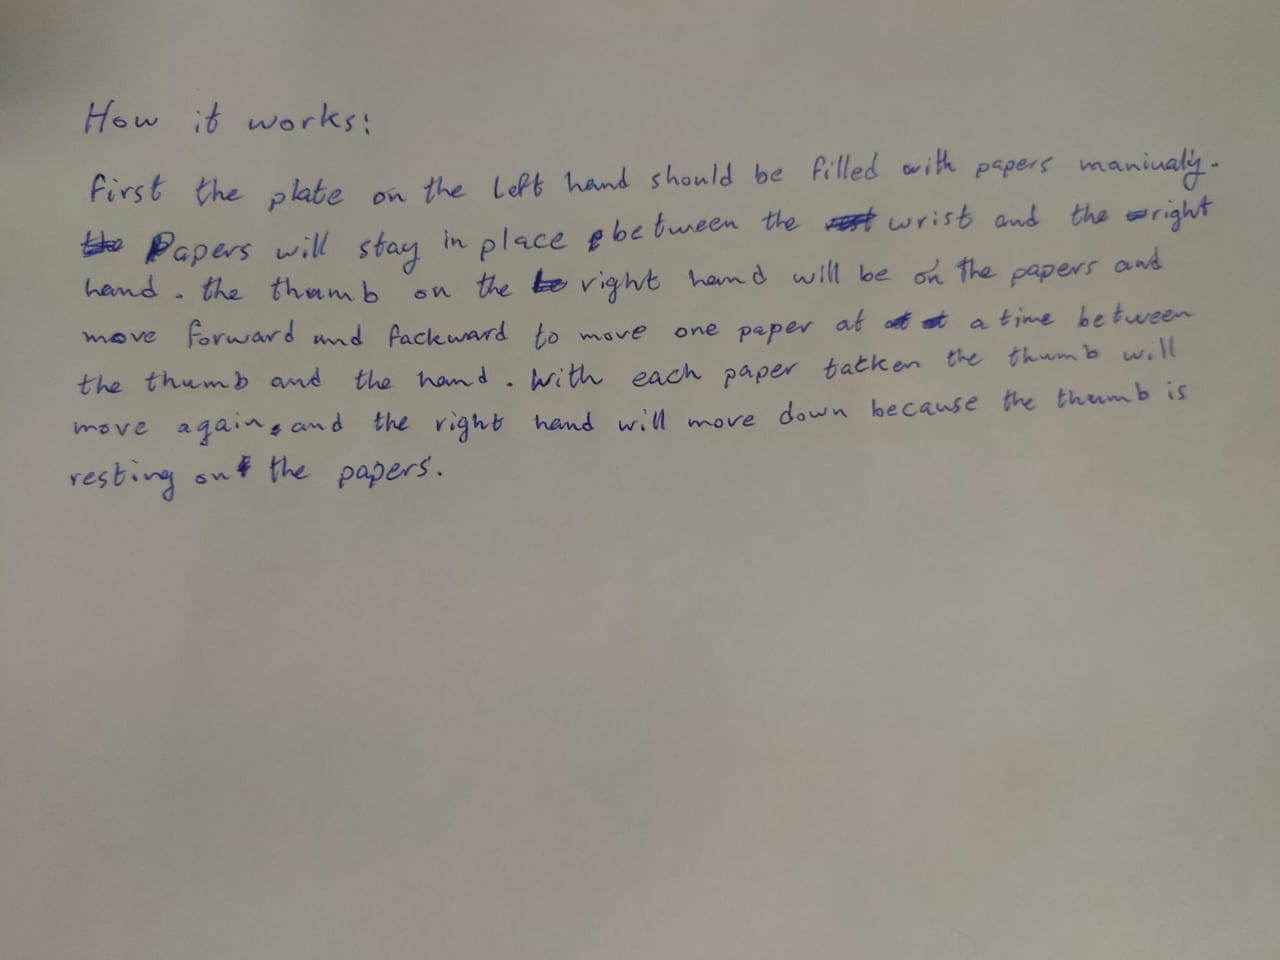 How it works:
first the plate on the left hand should be filled with papers maniualy.
Papers will stay in place between the wrist and the right
hand. the thumb on the right hand will be on the papers and
move forward and fackward to move one paper at a time between
the thumb and the hand. With each paper tatken the thumb will
move again, and the right hand will move down because the thumb is
resting on the papers.